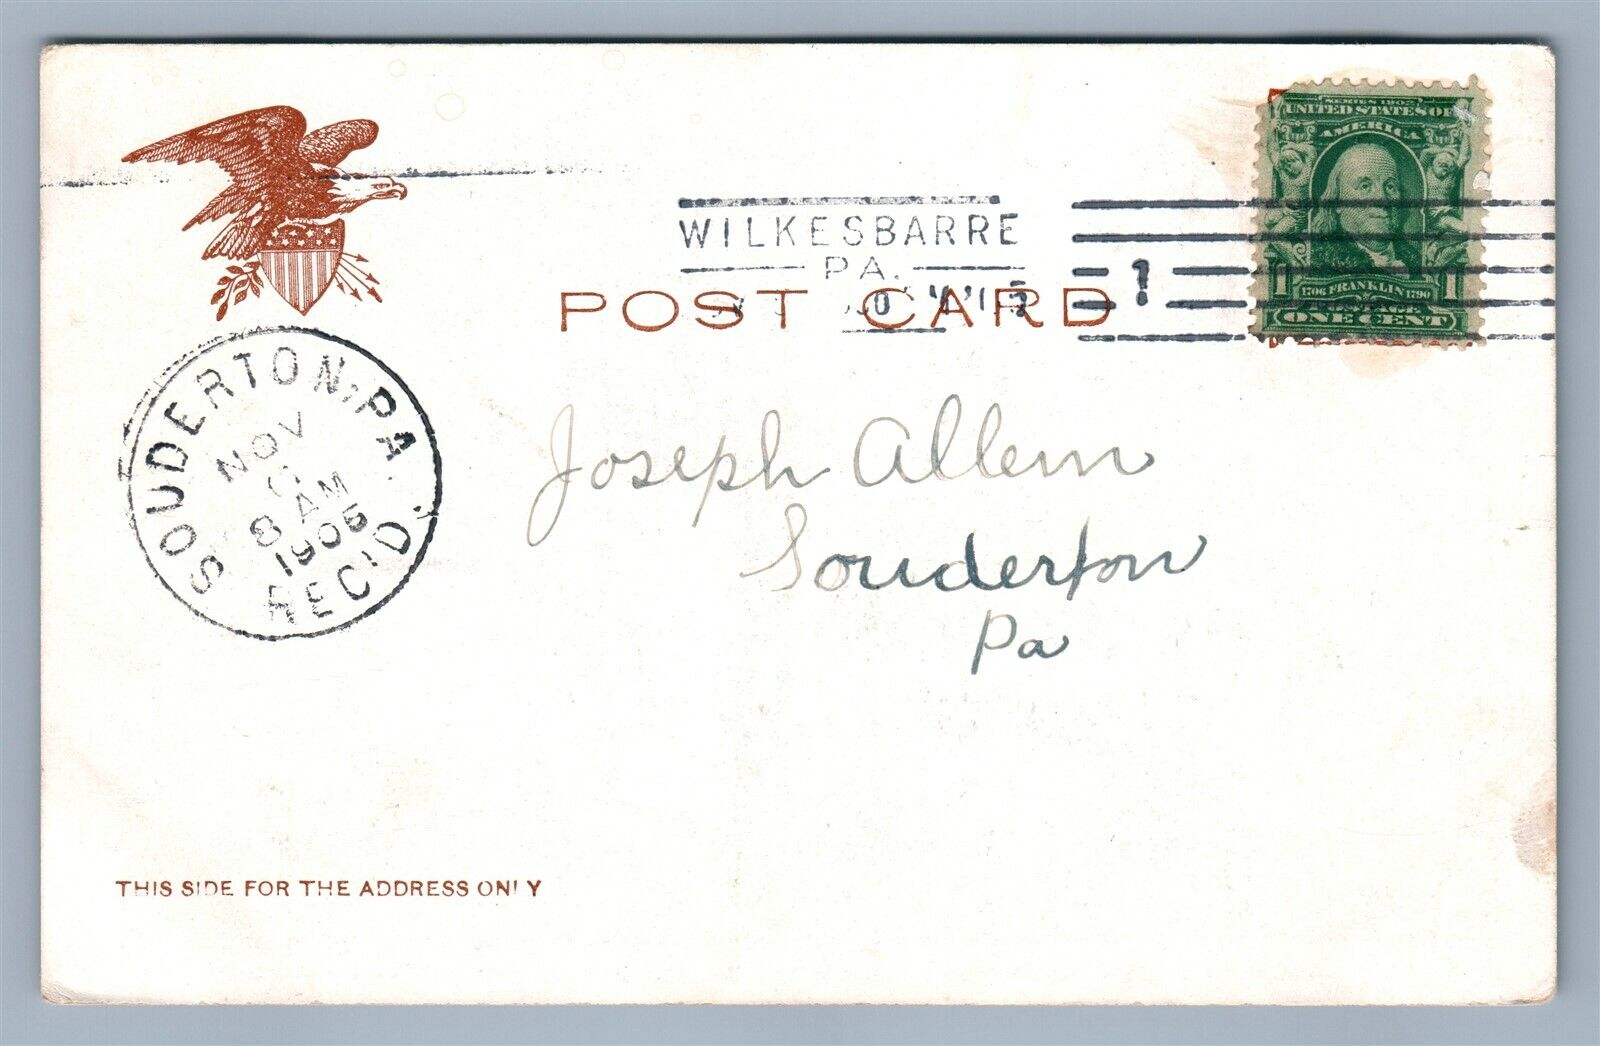 SERIES 1902
UNITED STATES OF
AMERICA
WILKESBARRE
PA.
1
POST CARD
1 1706 FRANKLIN 1790 1
POSTAGE
ONE CENT
SOUDERTON, PA.
NOV
8 AM
1905
REC'D.
Joseph Allem
Souderton
Pa
THIS SIDE FOR THE ADDRESS ONLY